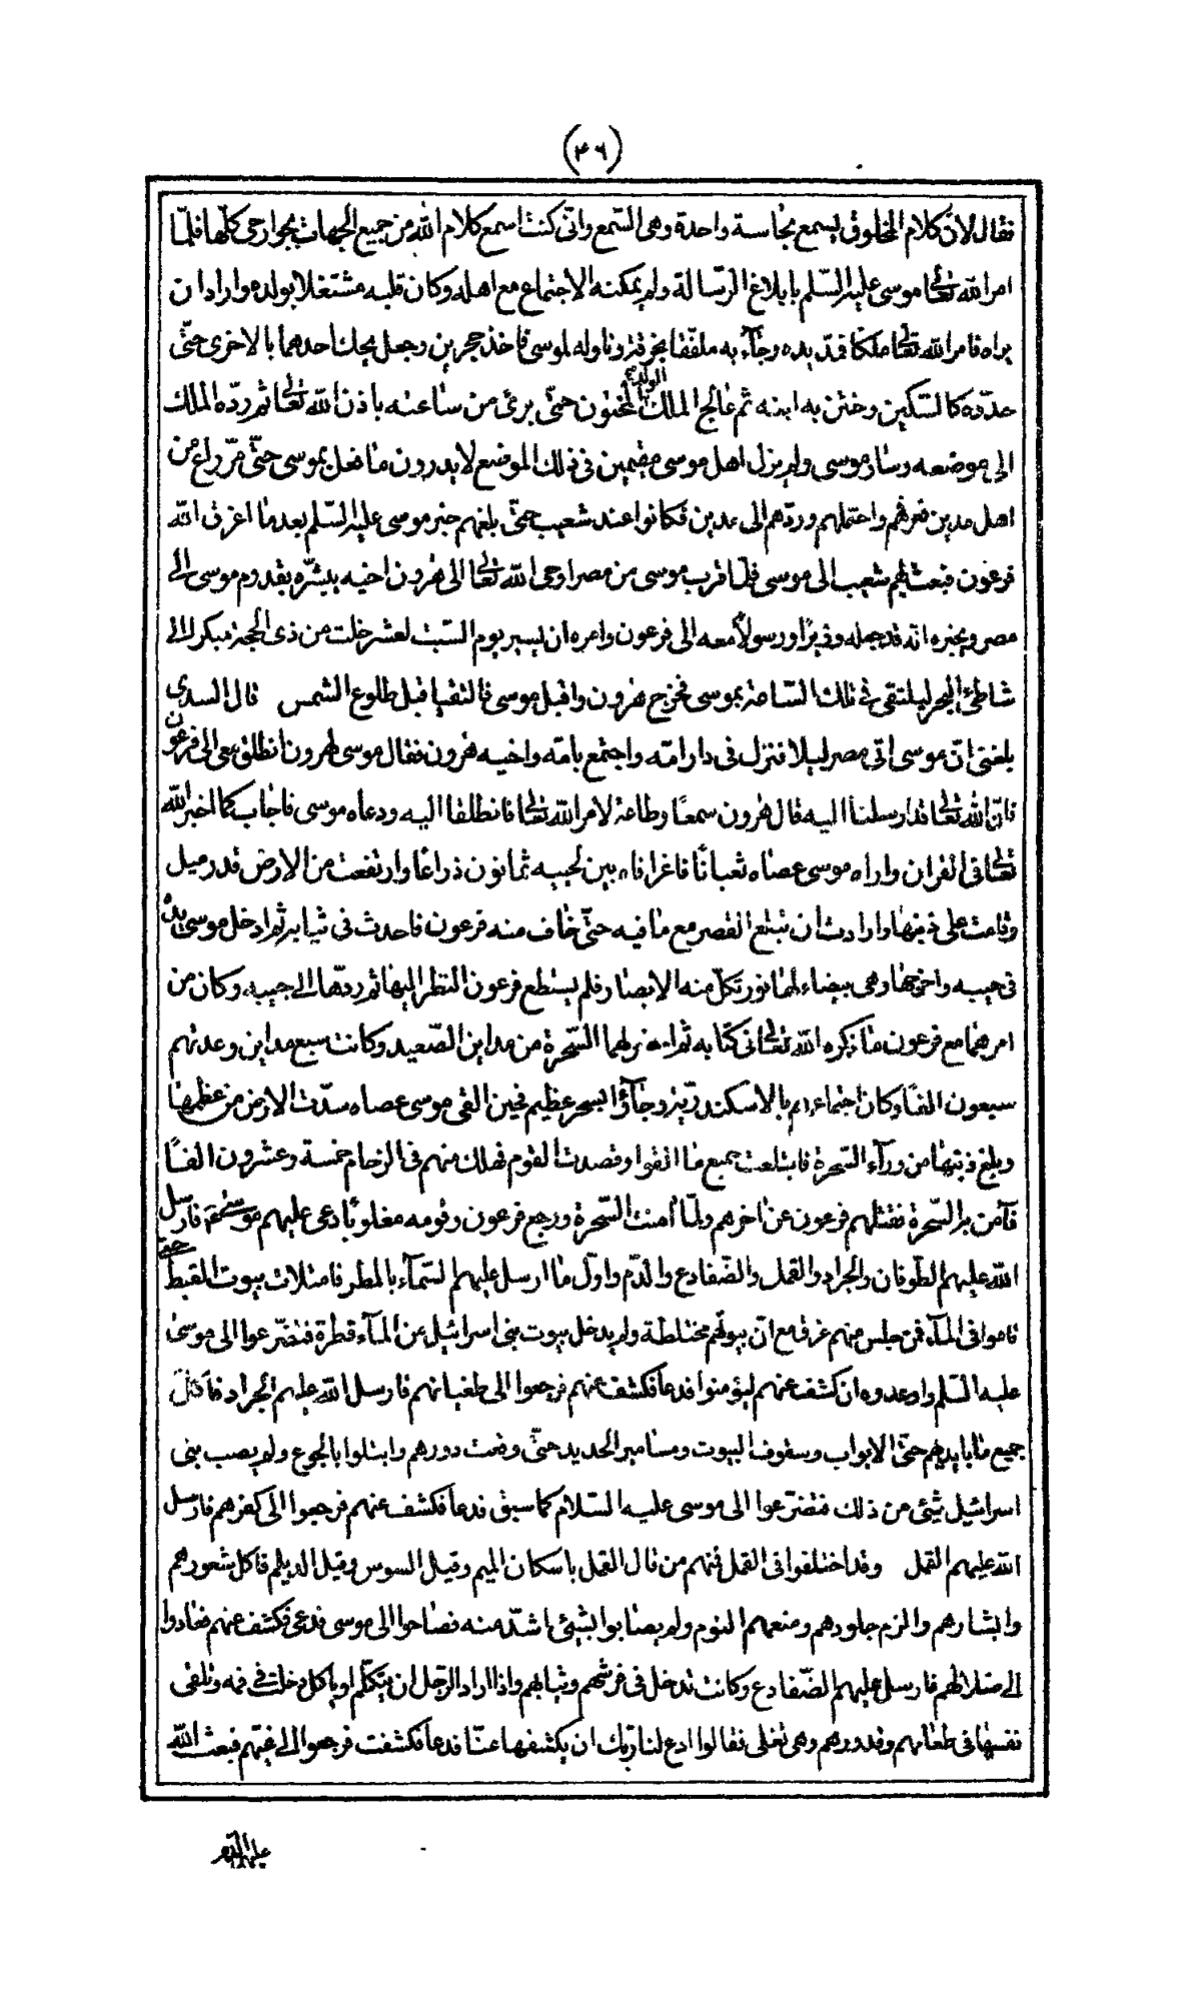 (۴۶)
فقال لانّ كلام المخلوق يسمع بحاسة واحدة وهى السّمع وانّى كنت اسمع كلام الله من جميع الجهات بجوارحى كلّها فلمّا
امر الله تعالى موسى عليه السّلم بابلاغ الرّسالة ولم يمكنه الاجتماع مع اهله وكان قلبه مشتغلا بولده واراد ان
يراه فامر الله تعالى ملكا فمدّ يده وجآء به ملفّفا بخرقة وناوله لموسى فاخذ حجرين وجعل يحك احدهما بالاخرى حتّى
حدّده كالسّكين وختن به ابنه ثم عالج الملك الولد المختون حتّى برئ من ساعته باذن الله تعالى ثم ردّه الملك
الى موضعه وسار موسى ولم يزل اهل موسى مقيمين فى ذلك الموضع لا يدرون ما فعل بموسى حتّى مرّ راع من
اهل مدين فعرفهم واحتملهم وردّهم الى مدين فكانوا عند شعيب حتّى بلغهم خبر موسى عليه السّلم بعدما اغرق الله
فرعون فبعث بهم شعيب الى موسى فلمّا قرب موسى من مصر اوحى الله تعالى الى هرون اخيه يبشّره بقدوم موسى الى
مصر ويخبره انّه قد جعله وزيرًا ورسولًا معه الى فرعون وامره ان يسير يوم السّبت لعشر خلت من ذى الحجة مبكرا الى
شاطئ البحر ليلتقى فى تلك السّاعة بموسى فخرج هرون واقبل موسى فالتقيا قبل طلوع الشمس قال السدى
بلغنى انّ موسى اتى مصر ليلا فنزل فى دار امّه واجتمع بامّه واخيه هرون فقال موسى لهرون انطلق معى الى فرعون
فانّ الله تعالى قد ارسلنا اليه قال هرون سمعًا وطاعة لامر الله تعالى فانطلقا اليه ودعاه موسى فاجاب كما اخبر الله
تعالى فى القران واراه موسى عصاه ثعبانًا فاغرا فاه بين لحييه ثمانون ذراعًا وارتفعت من الارض قدر ميل
وقامت على ذنبها وارادت ان تبتلع القصر مع ما فيه حتّى خاف منه فرعون فاحدث فى ثيابه ثم ادخل موسى يده
فى جيبه واخرجها وهى بيضاء لها نور تكلّ منه الابصار فلم يستطع فرعون النظر اليها ثم ردّها الى جيبه وكان من
امرهما مع فرعون ما ذكره الله تعالى فى كتابه ثم لهما السّحرة من مداين الصّعيد وكانت سبع مداين وعدتهم
سبعون الفًا وكان اجتماعهم بالاسكندريّة وجآؤا بسحر عظيم فحين القى موسى عصاه سدّت الارض من عظمها
وبلغ ذنبها من ورآء السّحرة فابتلعت جميع ما القوا وقصدت القوم فهلك منهم فى الزحام خمسة وعشرون الفًا
فآمن به السّحرة فقتلهم فرعون عن اخرهم ولمّا امنت السّحرة ورجع فرعون وقومه مغلوبًا دعى عليهم موسى فارسل
الله عليهم الطّوفان والجراد والقمل والضّفادع والدّم واوّل ما ارسل عليهم السّمآء بالمطر فامتلات بيوت القبط حتى
قاموا فى المآء فمن جلس منهم غرق مع انّ بيوتهم مختلطة ولم يدخل بيوت بنى اسرائيل من المآء قطرة فتضرّعوا الى موسى
عليه السّلم واوعدوه ان كشف عنهم ليؤمنوا فدعا فكشف عنهم فرجعوا الى طغيانهم فارسل الله عليهم الجراد فاكلت
جميع ما بايديهم حتّى الابواب وسقوف البيوت ومسامير الحديد حتّى وقعت دورهم وابتلوا بالجوع ولم يصب بنى
اسرائيل شئ من ذلك فتضرّعوا الى موسى عليه السّلام كما سبق فدعا فكشف عنهم فرجعوا الى كفرهم فارسل
الله عليهم القمل وقد اختلفوا فى القمل فمنهم من قال القمل باسكان الميم وقيل السوس وقيل الديلم فاكل شعورهم
وابشارهم والزم جلودهم ومنعهم النوم ولم يصابوا بشئ اشدّ منه فصاحوا الى موسى فدعى فكشف عنهم فعادوا
الى ضلالهم فارسل عليهم الضّفادع وكانت تدخل فى فرشهم وثيابهم واذا اراد الرّجل ان يتكلّم او ياكل دخلت فى فمه وتلقى
نفسها فى طعامهم وقدورهم وهى تغلى فقالوا ادع لنا ربّك ان يكشفها عنّا فدعا فكشفت فرجعوا الى غيّهم فبعث الله
عليهم الدّم